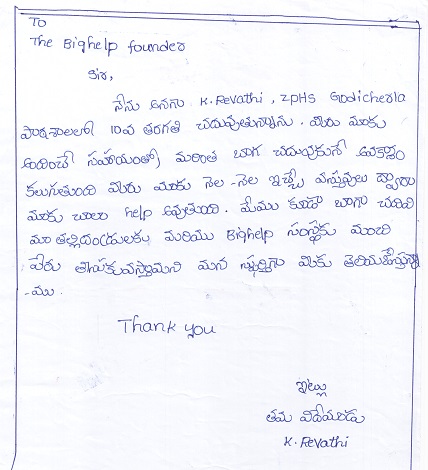 To
The Bighelp founder
Sir,
నేను అనగా K. Revathi, ZPHS Godicherla
పాఠశాలలో 10వ తరగతి చదువుతున్నాను. మీరు మాకు
అందించే సహాయంతో మరింత బాగ చదువుకునే అవకాశం
కలుగుతుంది మీరు మాకు నెల-నెల ఇచ్చే వస్తువులు ద్వారా
మాకు చాలా help అవుతుంది. మేము కూడా బాగా చదివి
మా తల్లిదండ్రులకు మరియు Bighelp సంస్థకు మంచి
పేరు తీసుకువస్తామని మన స్పూర్తిగా మీకు తెలియజేస్తున్నా
-ము.
Thank you
ఇట్లు
తమ విదేయురాలు
K. Revathi